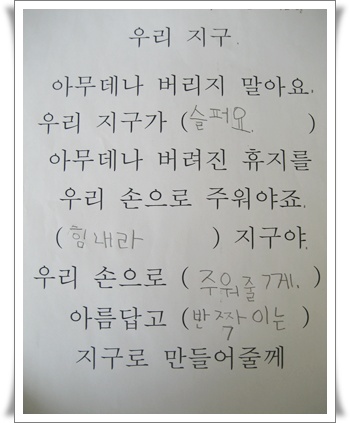 우리 지구.
아무데나 버리지 말아요.
우리 지구가 (슬퍼요.)
아무데나 버려진 휴지를
우리 손으로 주워야죠.
(힘내라) 지구야.
우리 손으로 (주워줄게.)
아름답고 (반짝이는)
지구로 만들어줄게